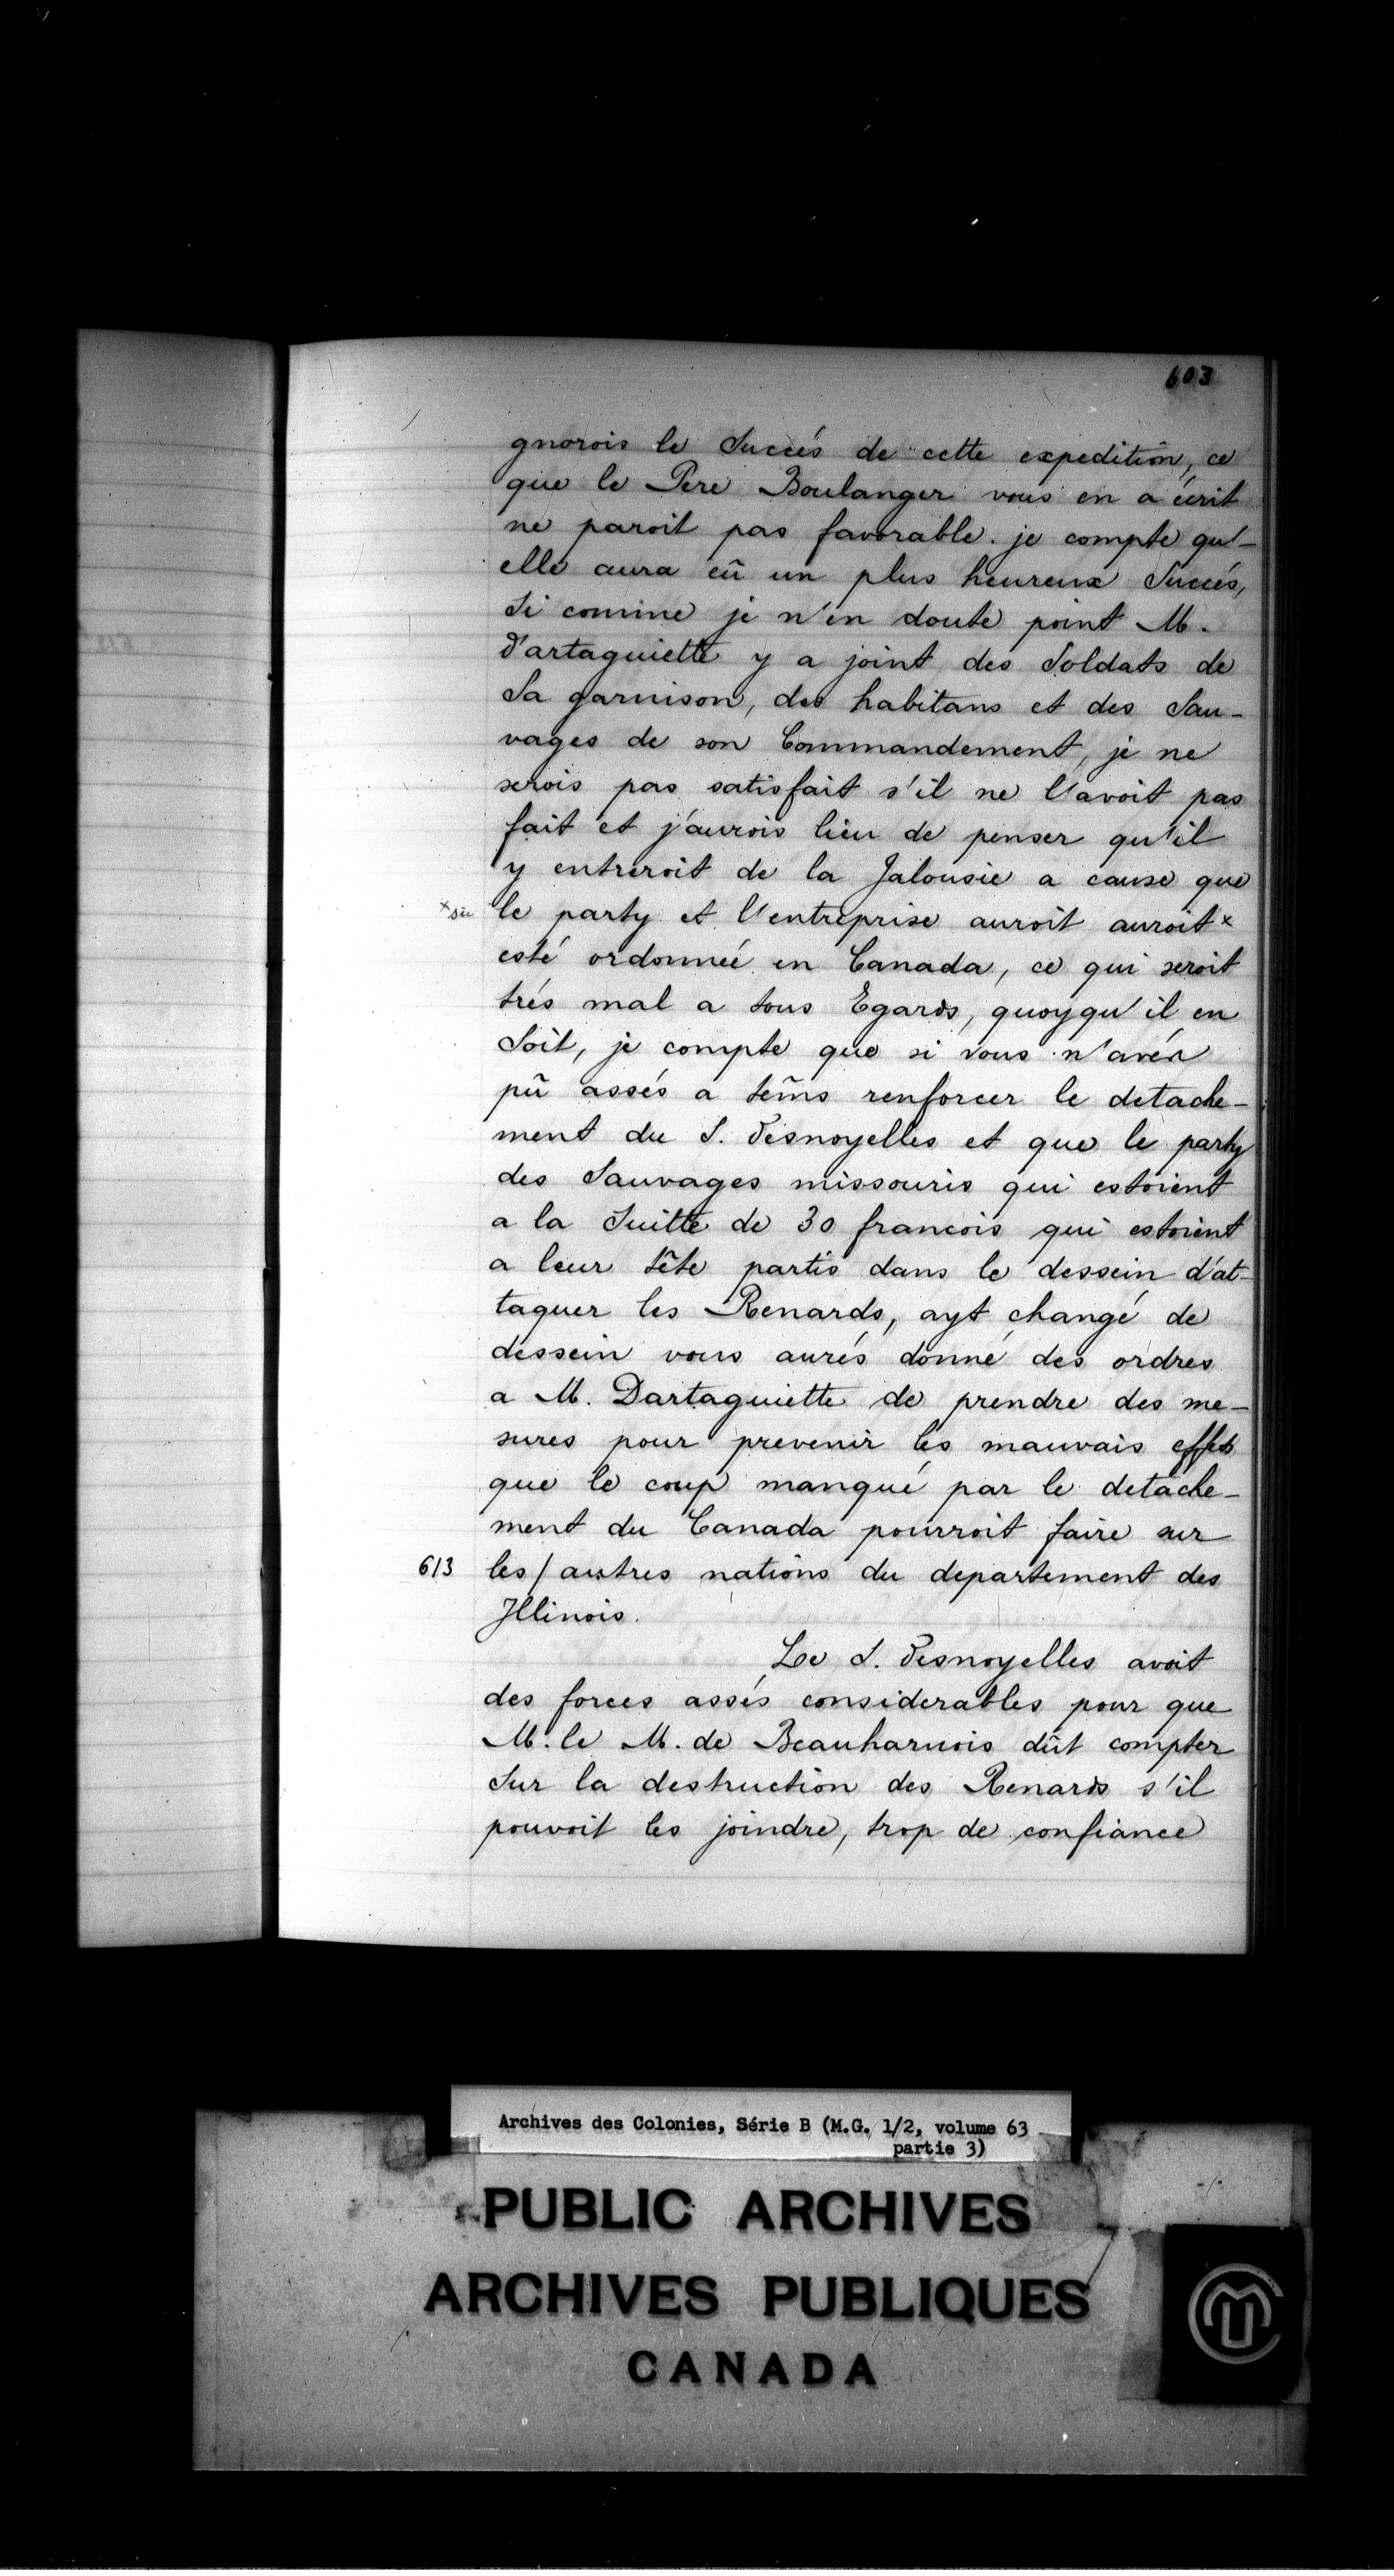 603
gnorois le Succés de cette expedition, ce
que le Pere Boulanger vous en a écrit
ne paroit pas favorable. je compte qu'-
elle aura eû un plus heureux Succés,
Si comme je n'en doute point M.
d'artaguiette y a joint des Soldats de
Sa garnison, des habitans et des Sau-
vages de son Commandement, je ne
serois pas satisfait s'il ne l'avoit pas
fait et j'aurois lieu de penser qu'il
y entreroit de la Jalousie a cause que
x sic le party et l'entreprise auroit auroit x
esté ordonneé en Canada, ce qui seroit
trés mal a tous Egards, quoyqu'il en
Soit, je compte que si vous n'avés
pû assés a tems renforcer le detache-
ment du S. Desnoyelles et que le party
des Sauvages missouris qui estoient
a la Suitte de 30 francois qui estoient
a leur tête partis dans le dessein d'at-
taquer les Renards, ayt changé de
dessein vous aurés donné des ordres
a M. Dartaguiette de prendre des me-
sures pour prevenir les mauvais effets
que le coup manqué par le detache-
ment du Canada pourroit faire sur
613 les / autres nations du departement des
Illinois.
Le S. Desnoyelles avoit
des forces assés considerables pour que
M. le M. de Beauharnois dût compter
Sur la destruction des Renards s'il
pouvoit les joindre, trop de confiance
Archives des Colonies, Série B (M.G. 1/2, volume 63
partie 3)
PUBLIC ARCHIVES
ARCHIVES PUBLIQUES
CANADA